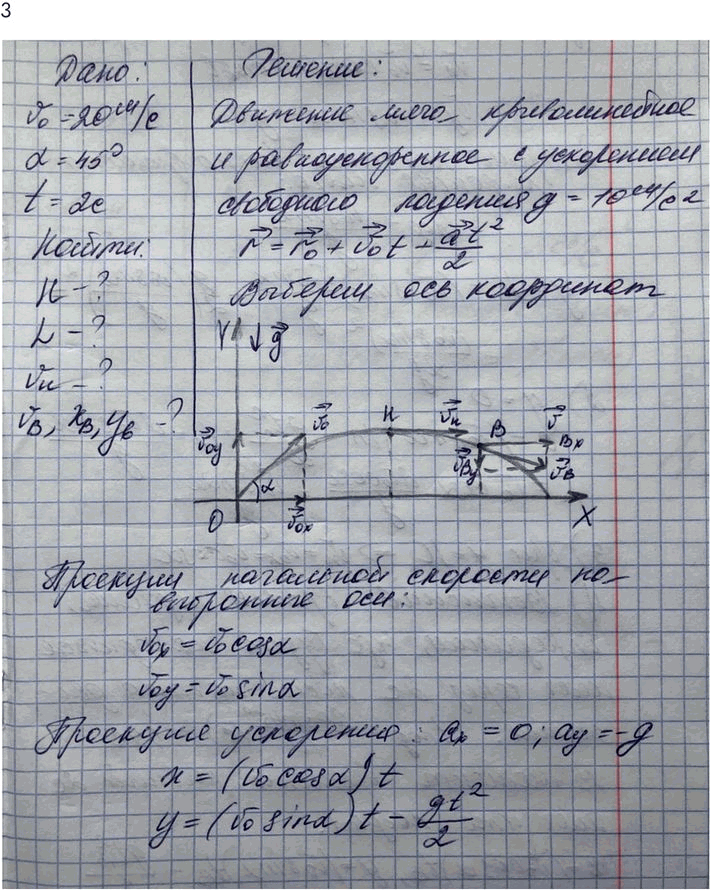 3
Дано:
v₀ = 20 м/с
α = 45°
t = 2с
Найти:
H - ?
L - ?
vн - ?
v⃗в, xв, yв - ?
Решение:
Движение мяча криволинейное
и равноускоренное с ускорением
свободного падения g = 10 м/с²
r⃗ = r⃗₀ + v⃗₀t + a⃗t²/2
Выберем ось координат
Y ↓ g⃗
v⃗₀ H v⃗н B v⃗ Bx
v⃗₀y v⃗By v⃗B
α
O v⃗₀x X
Проекции начальной скорости на
выбранные оси:
v₀x = v₀cosα
v₀y = v₀sinα
Проекция ускорения: aₓ = 0; ay = -g
x = (v₀cosα)t
y = (v₀sinα)t - gt²/2